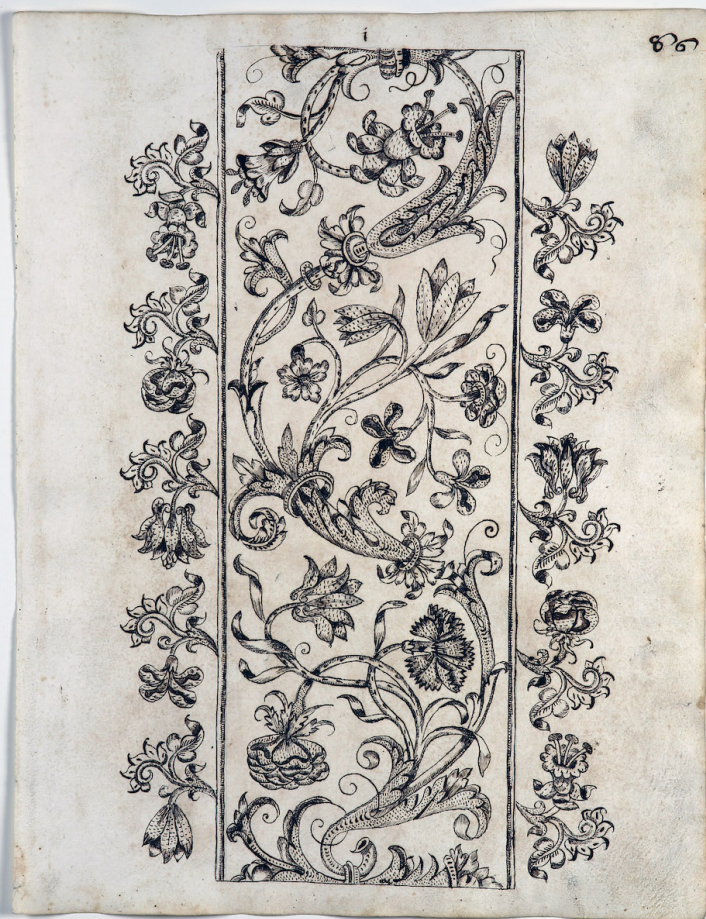 i
86